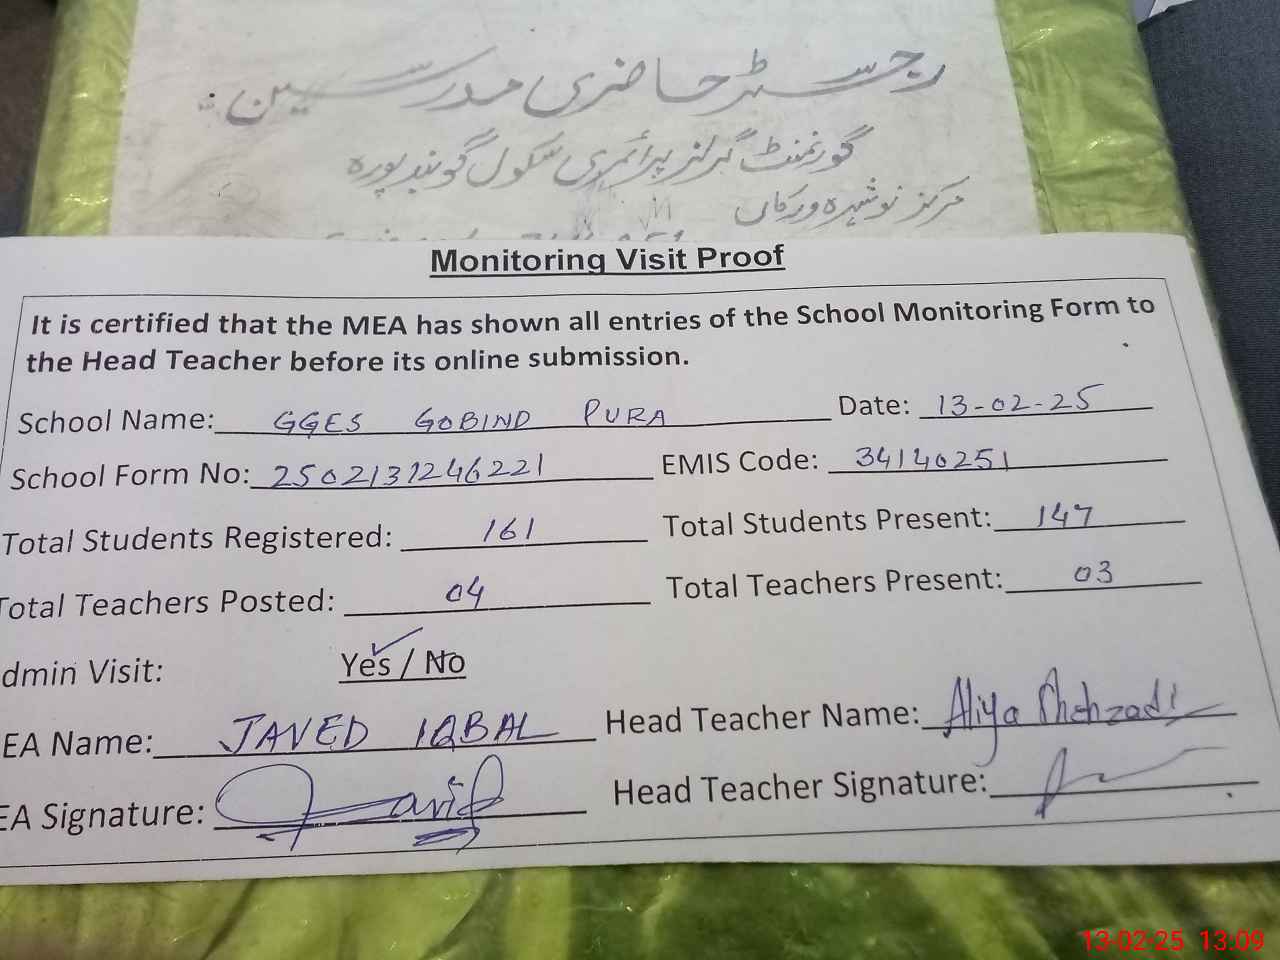 رجسٹر حاضری مدرسین
گورنمنٹ گرلز پرائمری سکول گوبند پورہ
مرکز نوشہرہ ورکاں
Monitoring Visit Proof
It is certified that the MEA has shown all entries of the School Monitoring Form to
the Head Teacher before its online submission.
School Name: GGES GOBIND PURA Date: 13-02-25
School Form No: 2502131246221 EMIS Code: 34140251
Total Students Registered: 161 Total Students Present: 147
Total Teachers Posted: 04 Total Teachers Present: 03
dmin Visit: Yes / No
EA Name: JAVED IQBAL Head Teacher Name: Aliya Shehzadi
EA Signature: Javid Head Teacher Signature:
13-02-25 13:09